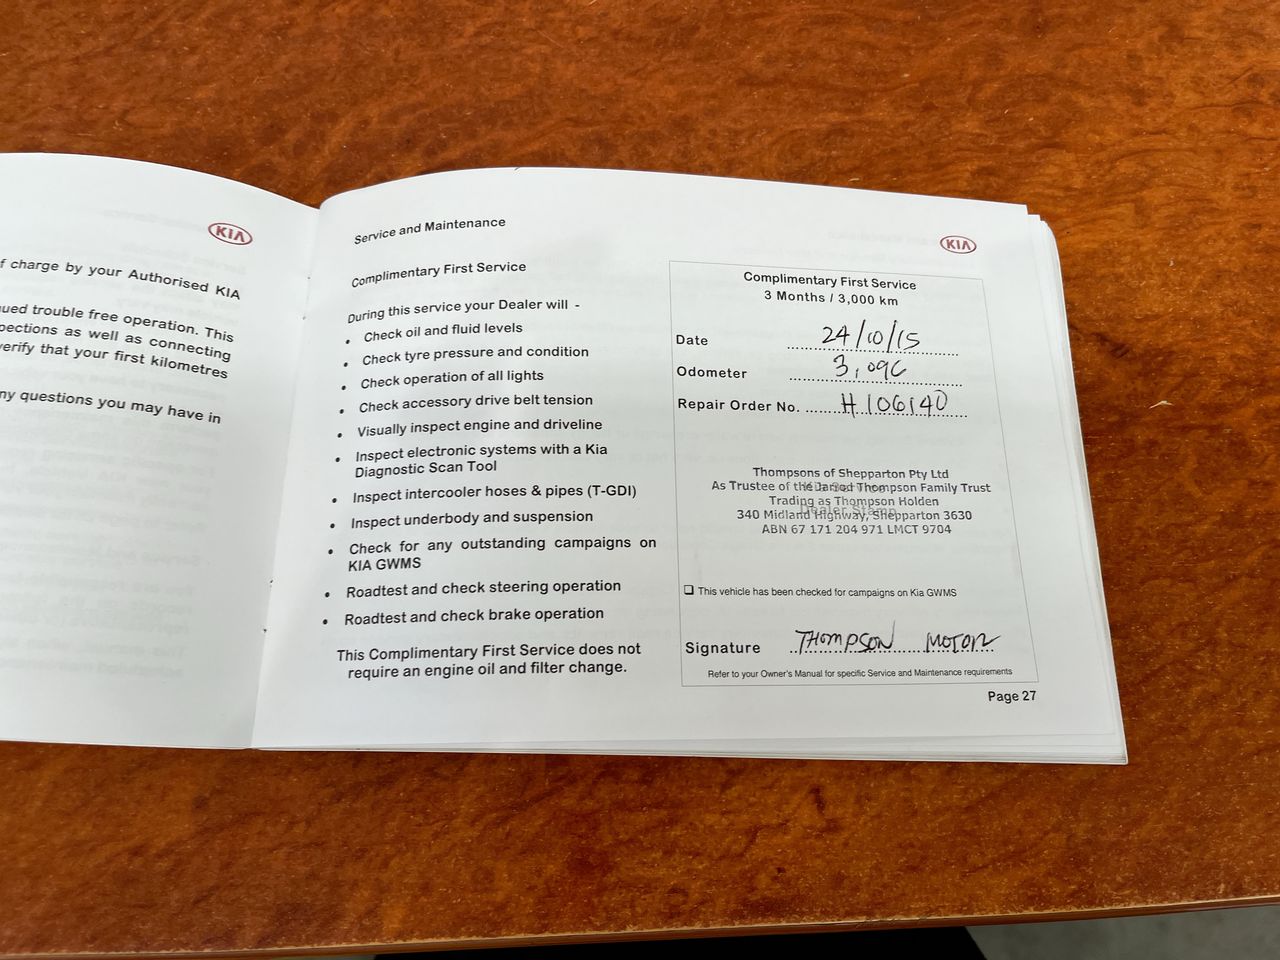 KIA
f charge by your Authorised KIA
ued trouble free operation. This
pections as well as connecting
verify that your first kilometres
ny questions you may have in
Service and Maintenance
Complimentary First Service
During this service your Dealer will -
• Check oil and fluid levels
• Check tyre pressure and condition
• Check operation of all lights
• Check accessory drive belt tension
• Visually inspect engine and driveline
• Inspect electronic systems with a Kia
Diagnostic Scan Tool
• Inspect intercooler hoses & pipes (T-GDI)
• Inspect underbody and suspension
• Check for any outstanding campaigns on
KIA GWMS
• Roadtest and check steering operation
• Roadtest and check brake operation
This Complimentary First Service does not
require an engine oil and filter change.
KIA
Complimentary First Service
3 Months / 3,000 km
Date 24/10/15
Odometer
Repair Order No. H106140
Thompsons of Shepparton Pty Ltd
As Trustee of the Jarrod Thompson Family Trust
Trading as Thompson Holden
Dealer Stamp
340 Midland Highway, Shepparton 3630
ABN 67 171 204 971 LMCT 9704
❑ This vehicle has been checked for campaigns on Kia GWMS
Signature THOMPSON MOTOR
Refer to your Owner's Manual for specific Service and Maintenance requirements
Page 27